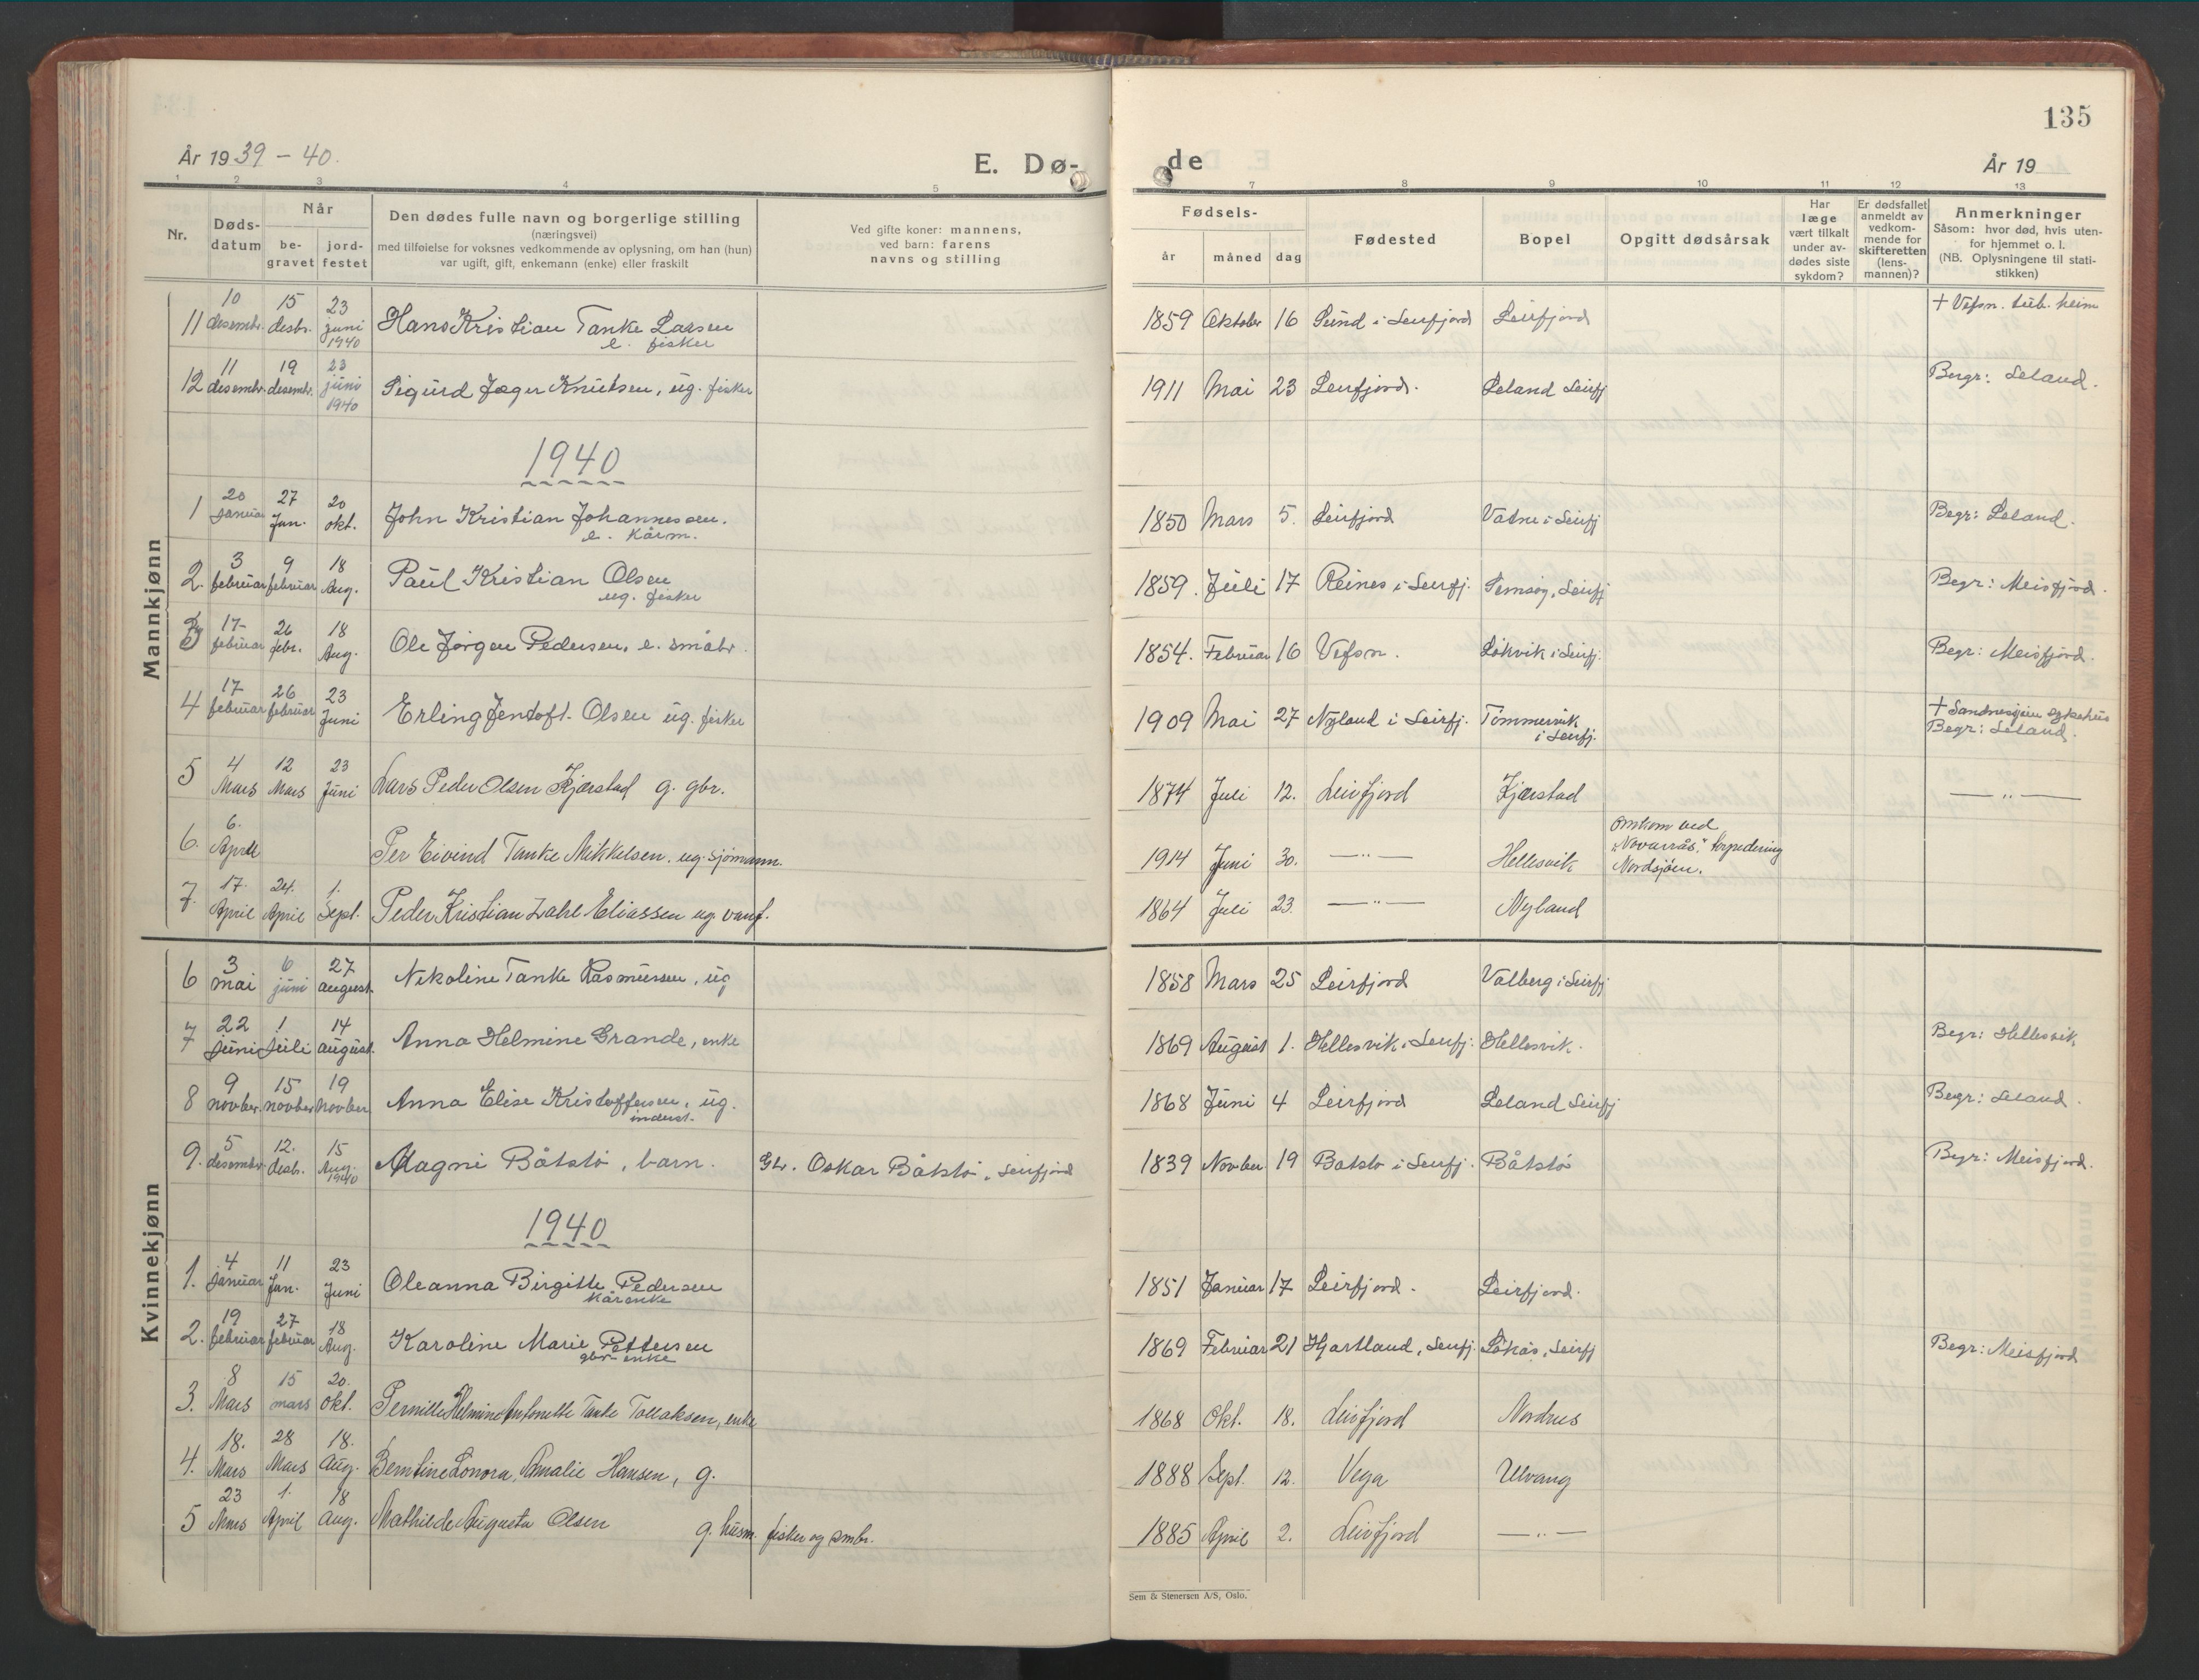 135
År 1939 - 40.
E. Dø-
de
År 19
1 2 3 4 5
7 8 9 10 11 12 13
Nr.
Døds-
datum
Når
be-
gravet
jord-
festet
Den dødes fulle navn og borgerlige stilling
(næringsvei)
med tilføielse for voksnes vedkommende av oplysning, om han (hun)
var ugift, gift, enkemann (enke) eller fraskilt
Ved gifte koner: mannens,
ved barn: farens
navns og stilling
Fødsels-
år måned dag
Fødested
Bopel
Opgitt dødsårsak
Har
læge
vært tilkalt
under av-
dødes siste
sykdom?
Er dødsfallet
anmeldt av
vedkom-
mende for
skifteretten
(lens-
mannen)?
Anmerkninger
Såsom: hvor død, hvis uten-
for hjemmet o. l.
(NB. Oplysningene til stati-
stikken)
Mannkjønn
11 10 desembr. 15 desbr. 23 juni 1940 Hans Kristian Tanke Larsen e. fisker 1859 Oktober 16 Sund i Leirfjord Leirfjord + Vefsn. tub. heim
12 11 desembr. 19 desembr. 23 juni 1940 Sigurd Jæger Knutsen, ug. fisker 1911 Mai 23 Leirfjord. Leland Leirfj Begr: Leland.
1940
1 20 Januar 27 Jan. 20 okt. John Kristian Johannessen. e. kårm. 1850 Mars 5. Leirfjord Vatne i Leirfj Begr: Leland.
2. 3 februar 9 februar 18 Aug. Paul Kristian Olsen ug. fisker 1859. Juli 17 Reines i Leirfj. Leirfj Begr: Meisfjord.
3 17 februar 26 febr. 18 Aug. Ole Jørgen Pedersen, e. småbr. 1854. Februar 16 Vefsn. Løkvik i Leirfj. Begr: Meisfjord.
4 17 februar 26 februar 23 Juni Erling Jentoft Olsen ug. fisker 1909 Mai 27 Nyland i Leirfj. Tømmervik i Leirfj. + Sandnessjøen sykehus Begr: Leland.
5 4 Mars 12 Mars 23 Juni Lars Peder Olsen Kjærstad g. gbr. 1874 Juli 12. Leirfjord Kjærstad — " —
6. 6. April Per Eivind Tanke Mikkelsen. ug. sjømann. 1914 Juni 30. — " — Hellesvik Omkom ved "Novarrås" torpedering Nordsjøen.
7. 17. April 24. April 1. Sept. Peder Kristian Zahl Eliassen ug vanf. 1864 Juli 23. — " — Nyland
Kvinnekjønn
6 3 mai 6 juni 27 august Nikoline Tanke Rasmussen, ug 1858 Mars 25 Leirfjord Valberg i Leirfj
7 22 Juni 1 Juli 14 august. Anna Helmine Grande, enke 1869 August 1. Hellesvik i Leirfj. Hellesvik. Begr: Hellesvik
8 9 novber. 15 novber 19 Novber Anna Elise Kristoffersen, ug. indust. 1868 Juni 4 Leirfjord Leland Leirfj Begr: Leland.
9. 5 desembr. 12. desb. 15 Aug. 1940 Magni Båtstø, barn. Gbr. Oskar Båtstø, Leirfjord 1839 Novber 19 Båtstø i Leirfj. Båtstø Begr: Meisfjord.
1940
1. 4 Januar 11 Jan. 23 Juni Oleanna Birgitte Pedersen kårenke 1851 Januar 17 Leirfjord. Leirfjord.
2. 19 februar 27 februar 18 Aug. Karoline Marie Pettersen gbr-enke 1869 Februar 21 Hjartland, Leirfj. Løkås, Leirfj Begr: Meisfjord
3. 8 Mars 15 mars 20. okt. Pernille Helmine Antonette Tanke Tollaksen, enke 1868 Okt. 18. Leirfjord Nordnes
4. 18. Mars 28 Mars 18. Aug. Berntine Lonora, Amalie Hansen, g. 1888 Sept. 12. Vega Ulvang
5 23 Mars 1. April 18 Aug. Mathilde Augusta Olsen g. husm. fisker og smbr. 1885 April 2. Leirfjord — " —
Sem & Stenersen A/S, Oslo.